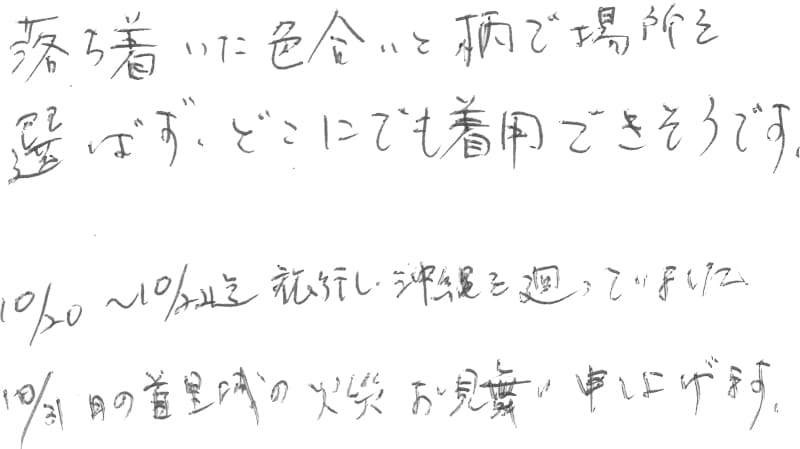 落ち着いた色合いと柄で場所を
選ばず、どこにでも着用できそうです。
10/20 〜10/24迄 旅行し、沖縄を廻っていました
10/31日の首里城の火災お見舞い申し上げます。